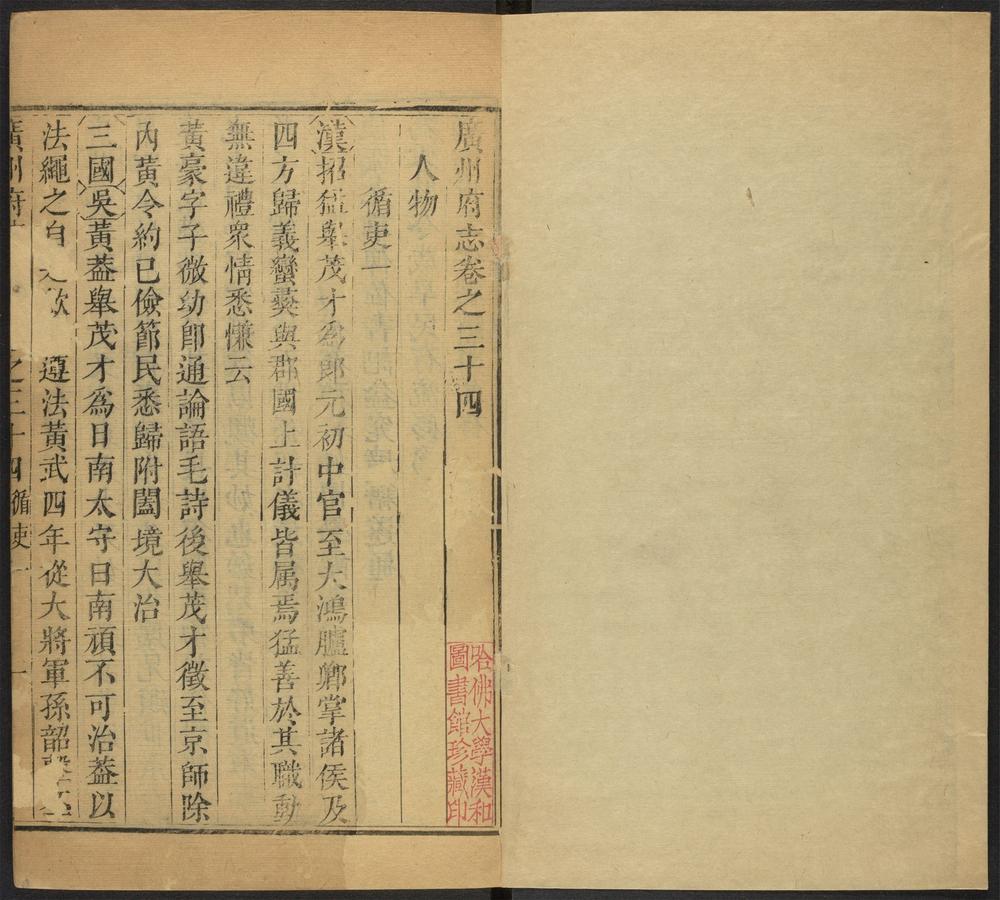 廣州府志卷之三十四
人物
循吏一
漢招猛舉茂才為郎元初中官至大鴻臚卿掌諸侯及
四方歸義蠻彞與郡國上計儀皆属焉猛善於其職動
無違禮衆情悉慊云
黃豪字子微幼卽通論語毛詩後舉茂才徵至京師除
內黃令約已儉節民悉歸附闔境大治
三國吳黃葢舉茂才為日南太守日南頑不可治葢以
法繩之自 遵法黃武四年從大將軍孫韶
廣州府 之三十四循吏一 一
哈佛大學漢和
圖書館珍藏印